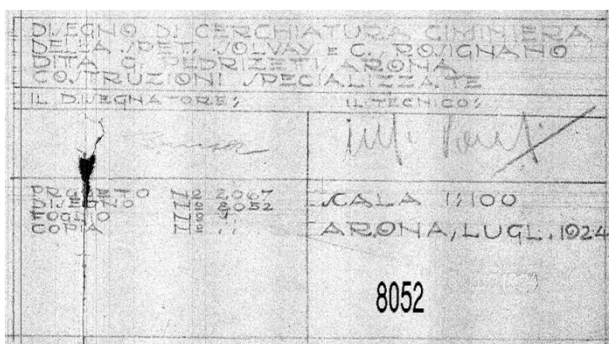 DISEGNO DI CERCHIATURA CIMINIERA
DELLA SPET. SOLVAY E C. ROSIGNANO
DITA G. PEDRIZETI, ARONA
COSTRUZIONI SPECIALIZZATE
IL DISEGNATORE; IL TECNICO;
PROGETO Nº 2.067
DISEGNO Nº 8052
FOGLIO Nº
COPIA Nº
SCALA 1:100
ARONA, LUGL. 1924
8052